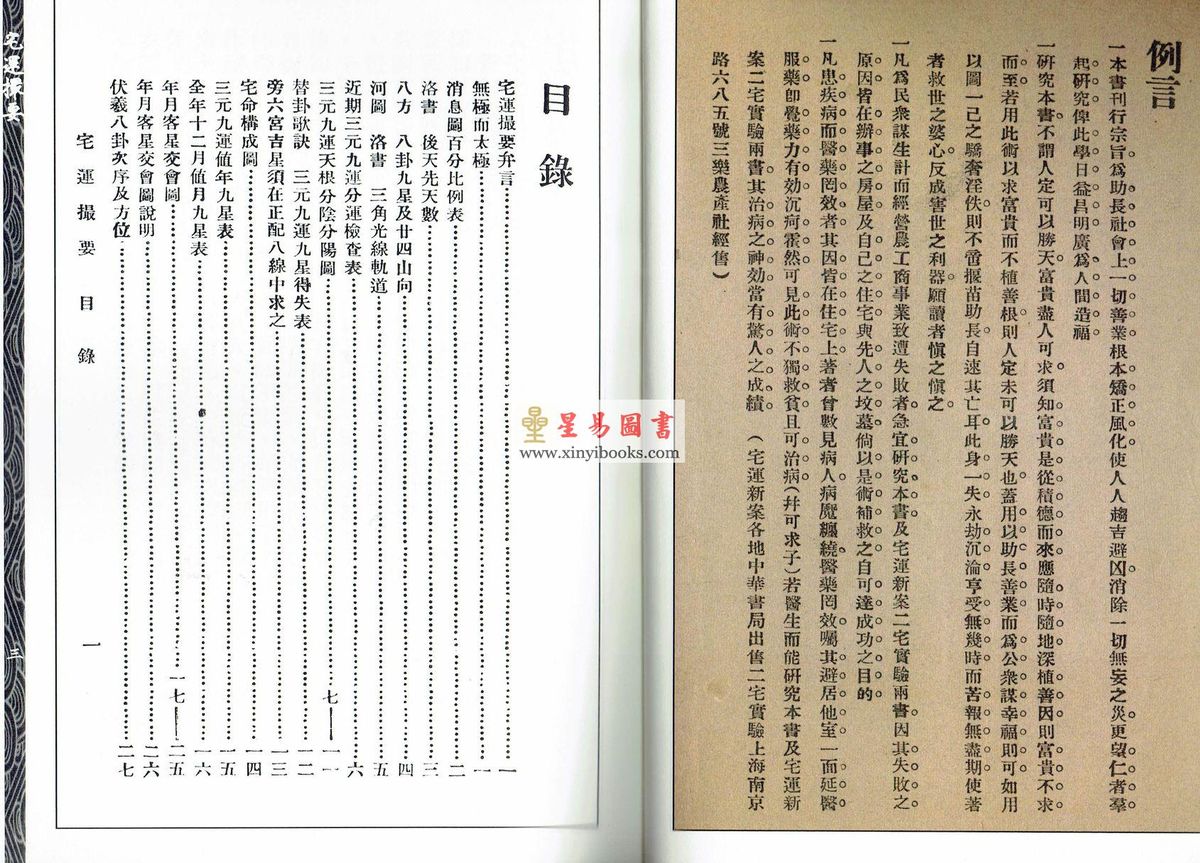 例言
一本書刊行宗旨爲助長社會上一切善業根本矯正風化使人人趨吉避凶消除一切無妄之災更望仁者羣
起研究俾此學日益昌明廣爲人間造福
一研究本書不謂人定可以勝天富貴盡人可求須知富貴是從積德而來應隨時隨地深植善因則富貴不求
而至若用此術以求富貴而不植善根則人定未可以勝天也蓋用以助長善業而爲公衆謀幸福則可如用
以圖一己之驕奢淫佚則不啻揠苗助長自速其亡耳此身一失永劫沉淪亨受無幾時而苦報無盡期使著
者救世之婆心反成害世之利器願讀者愼之愼之
一凡爲民衆謀生計而經營農工商事業致遭失敗者急宜研究本書及宅運新案二宅實驗兩書因其失敗之
原因皆在辦事之房屋及自己之住宅與先人之坟墓倘以是術補救之自可達成功之目的
一凡患疾病而醫藥罔效者其因皆在住宅上著者曾數見病人病魔纏繞醫藥罔效囑其避居他室一面延醫
服藥卽覺藥力有効沉疴霍然可見此術不獨救貧且可治病(幷可求子)若醫生而能研究本書及宅運新
案二宅實驗兩書其治病之神効當有驚人之成績 (宅運新案各地中華書局出售二宅實驗上海南京
路六八五號三樂農產社經售)
目錄
宅運撮要弁言……一
無極而太極……一
消息圖百分比例表……二
洛書 後天先天數……三
八方 八卦九星及廿四山向……四
河圖 洛書 三角光線軌道……五
近期三元九運分運檢查表……六
三元九運天根分陰分陽圖……七——一一
替卦歌訣 三元九運九星得失表……一二
旁六宮吉星須在正配八線中求之……一三
宅命構成圖……一四
三元九運値年九星表……一五
全年十二月値月九星表……一六
年月客星交會圖……一七——二五
年月客星交會圖說明……二六
伏羲八卦次序及方位……二七
宅運撮要 目錄 一
宅運撮要
三
星易圖書
www.xinyibooks.com